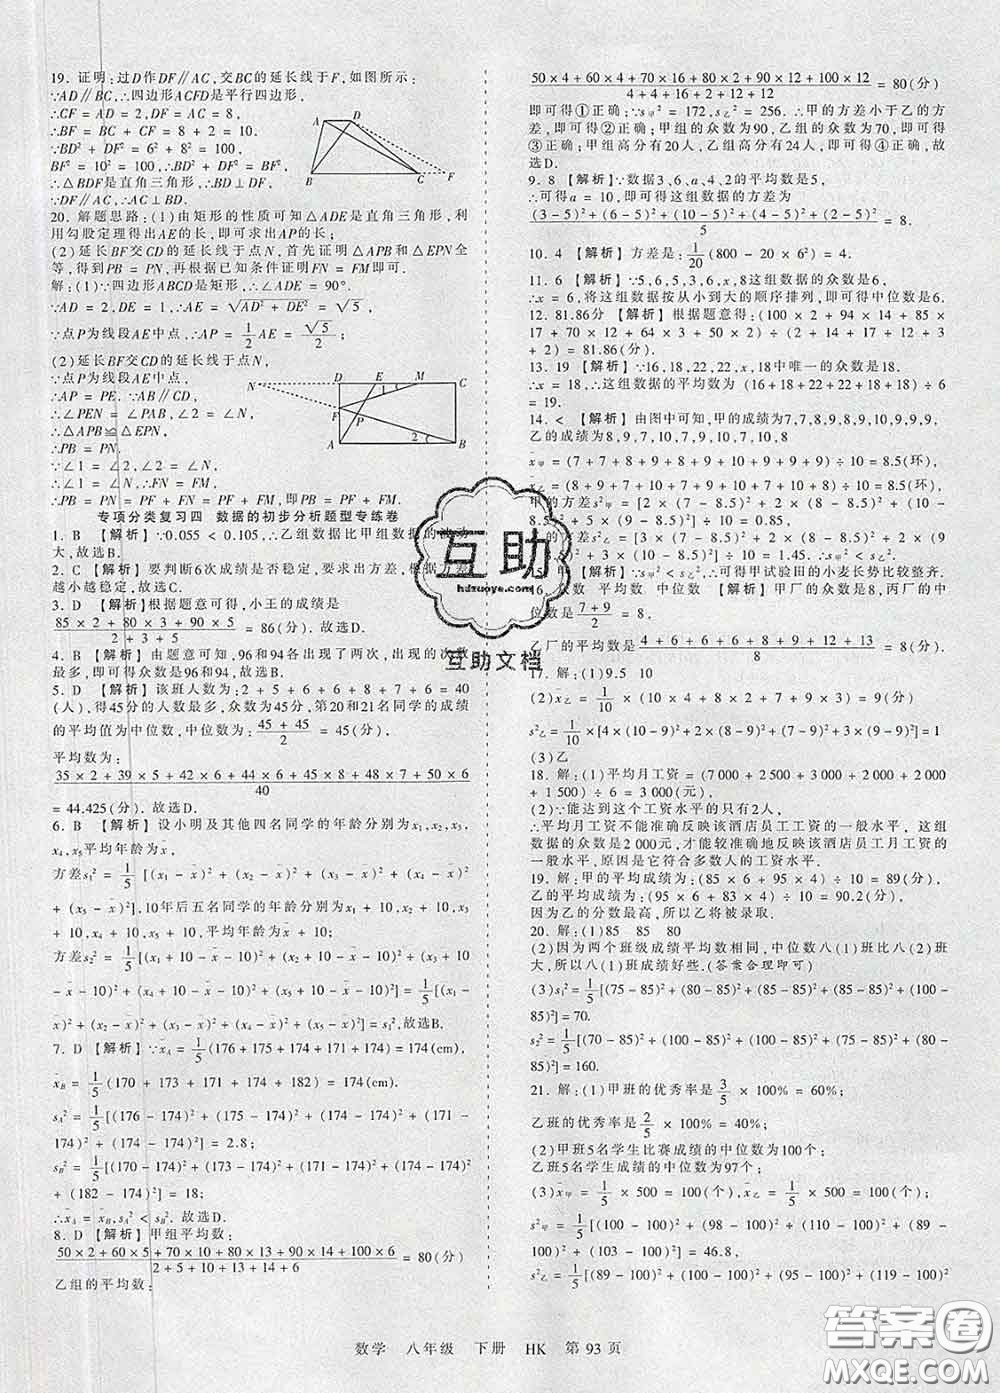 19. 证明:过D作DF∥AC,交BC的延长线于F,如图所示:
∵AD∥BC,∴四边形ACFD是平行四边形,
∴CF = AD = 2,DF = AC = 8,
∴BF = BC + CF = 8 + 2 = 10.
∵BD² + DF² = 6² + 8² = 100,
BF² = 10² = 100,∴BD² + DF² = BF²,
∴△BDF是直角三角形,∴BD⊥DF.
∵DF∥AC,∴AC⊥BD.
A D
B C F
20. 解题思路:(1)由矩形的性质可知△ADE是直角三角形,利
用勾股定理得出AE的长,即可求出AP的长;
(2)延长BF交CD的延长线于点N,首先证明△APB和△EPN全
等,得到PB = PN,再根据已知条件证明FN = FM即可.
解:(1)∵四边形ABCD是矩形,∴∠ADE = 90°.
∵AD = 2,DE = 1,∴AE = √(AD² + DE²) = √5,
∵点P为线段AE中点,∴AP = 1/2 AE = √5/2;
(2)延长BF交CD的延长线于点N,
∵点P为线段AE中点,
∴AP = PE. ∵AB∥CD,
∴∠PEN = ∠PAB,∠2 = ∠N,
∴△APB≌△EPN,
∴PB = PN.
N D E M C
F 1
P
A 2 B
∵∠1 = ∠2,∴∠1 = ∠N,
∴FN = FM,
∴PB = PN = PF + FN = PF + FM,即PB = PF + FM.
专项分类复习四 数据的初步分析题型专练卷
1. B 【解析】∵0.055 < 0.105,∴乙组数据比甲组数据的波动
大,故选B.
2. C 【解析】要判断6次成绩是否稳定,要求出方差,根据方差
越小越稳定,故选C.
3. D 【解析】根据题意可得,小王的成绩是
(85 × 2 + 80 × 3 + 90 × 5)/(2 + 3 + 5) = 86(分). 故选D.
4. B 【解析】由题意可知,96和94各出现了两次,出现的次数
最多,即可得出众数是96和94,故选B.
5. D 【解析】该班人数为:2 + 5 + 6 + 6 + 8 + 7 + 6 = 40
(人),得45分的人数最多,众数为45分,第20和21名同学的成绩
的平均值为中位数,中位数为(45 + 45)/2 = 45(分),
平均数为:
(35 × 2 + 39 × 5 + 42 × 6 + 44 × 6 + 45 × 8 + 48 × 7 + 50 × 6)/40
= 44.425(分). 故选D.
6. B 【解析】设小明及其他四名同学的年龄分别为x₁,x₂,x₃,
x₄,x₅平均年龄为x̄,
方差s₁² = 1/5 [(x₁ − x̄)² + (x₂ − x̄)² + (x₃ − x̄)² + (x₄ − x̄)²
+ (x₅ − x̄)²].10年后五名同学的年龄分别为x₁ + 10,x₂ + 10,x₃
+ 10,x₄ + 10,x₅ + 10,平均年龄为x̄ + 10,
方差s₂² = 1/5[(x₁ + 10 − x̄ − 10)² + (x₂ + 10 − x̄ − 10)² + (x₃ + 10
− x̄ − 10)² + (x₄ + 10 − x̄ − 10)² + (x₅ + 10 − x̄ − 10)²] = 1/5[(x₁
− x̄)² + (x₂ − x̄)² + (x₃ − x̄)² + (x₄ − x̄)² + (x₅ − x̄)²]= s₁²,故选B.
7. D 【解析】∵x̄A = 1/5(176 + 175 + 174 + 171 + 174) = 174(cm),
x̄B = 1/5(170 + 173 + 171 + 174 + 182) = 174(cm).
sA² = 1/5[(176 − 174)² + (175 − 174)² + (174 − 174)² + (171 −
174)² + (174 − 174)²] = 2.8;
sB² = 1/5[(170 − 174)² + (173 − 174)² + (171 − 174)² + (174 − 174)²
+ (182 − 174)²] = 18;
∴x̄A = x̄B,sA² < sB². 故选D.
8. D 【解析】甲组平均数:
(50 × 2 + 60 × 5 + 70 × 10 + 80 × 13 + 90 × 14 + 100 × 6)/(2 + 5 + 10 + 13 + 14 + 6) = 80(分)
乙组的平均数:
(50 × 4 + 60 × 4 + 70 × 16 + 80 × 2 + 90 × 12 + 100 × 12)/(4 + 4 + 16 + 2 + 12 + 12) = 80(分)
即可得①正确;∵s甲² = 172,s乙² = 256. ∴甲的方差小于乙的方
差,即可得②正确;甲组的众数为90,乙组的众数为70,即可得
③正确;甲组高分有20人,乙组高分有24人,即可得④正确;故
选D.
9. 8 【解析】∵数据3、6、a、4、2的平均数是5,
∴可得a = 10,即可得这组数据的方差是
((3 − 5)² + (6 − 5)² + (10 − 5)² + (4 − 5)² + (2 − 5)²)/5 = 8.
10. 4 【解析】方差是:1/20(800 − 20 × 6²) = 4.
11. 6 【解析】∵5,6,5,3,6,x,8这组数据的众数是6,
∴x = 6,将这组数据按从小到大的顺序排列,即可得中位数是6.
12. 81.86分 【解析】根据题意得:(100 × 2 + 94 × 14 + 85 ×
17 + 70 × 12 + 64 × 3 + 50 × 2) ÷ (2 + 14 + 17 + 12 + 3 +
2) = 81.86(分).
13. 19 【解析】∵16,18,22,22,x,18中唯一的众数是18.
∴x = 18,∴这组数据的平均数为 (16 + 18 + 22 + 22 + 18 + 18) ÷ 6
= 19.
14. < 【解析】由图中可知,甲的成绩为7,7,8,9,8,9,10,9,9,9,
乙的成绩为8,9,7,10,7,9,10,7,10,8
x̄甲 = (7 + 7 + 8 + 9 + 8 + 9 + 10 + 9 + 9 + 9) ÷ 10 = 8.5(环),
x̄乙 = (8 + 9 + 7 + 10 + 7 + 9 + 10 + 7 + 10 + 8) ÷ 10 = 8.5(环),
甲的方差s²甲 = [2 × (7 − 8.5)² + 2 × (8 − 8.5)² + (10 −
8.5)² + 5 × (9 − 8.5)²] ÷ 10 = 0.85,
的方差s²乙 = [3 × (7 − 8.5)² + 2 × (8 − 8.5)² + 2 × (9
− 8.5)² + 3 × (10 − 8.5)²] ÷ 10 = 1.45. ∴s²甲 < s²乙.
15. 【解析】∵s甲² < s乙²,∴可得甲试验田的小麦长势比较整齐.
16. 众数 平均数 中位数 【解析】甲厂的众数是8,丙厂的中
位数是(7 + 9)/2
乙厂的平均数是(4 + 6 + 6 + 6 + 8 + 9 + 12 + 13)/8
17. 解:(1)9.5 10
(2)x̄乙 = 1/10 × (10 × 4 + 8 × 2 + 7 + 9 × 3) = 9(分)
s²乙 = 1/10 ×[4 × (10 − 9)² + 2 × (8 − 9)² + (7 − 9)² + 3 × (9 − 9)²] = 1
(3)乙
18. 解:(1)平均月工资 = (7 000 + 2 500 + 3 000 + 2 000 + 2 000
+ 1 500) ÷ 6 = 3 000(元),
(2)∵能达到这个工资水平的只有2人,
∴平均月工资不能准确反映该酒店员工工资的一般水平,这组
数据的众数是2 000元,才能较准确地反映该酒店员工月工资的
一般水平,原因是它符合多数人的工资水平.
19. 解:甲的平均成绩为:(85 × 6 + 95 × 4) ÷ 10 = 89(分),
乙的平均成绩为:(95 × 6 + 83 × 4) ÷ 10 = 90.2(分).
因为乙的分数最高,所以乙将被录取.
20. 解:(1)85 85 80
(2)因为两个班级成绩平均数相同,中位数八(1)班比八(2)班
大,所以八(1)班成绩好些.(答案合理即可)
(3)s₁² = 1/5[(75 − 85)² + (80 − 85)² + (85 − 85)² + (85 − 85)² + (100 −
85)²] = 70.
s₂² = 1/5[(70 − 85)² + (100 − 85)² + (100 − 85)² + (75 − 85)² + (80 −
85)²] = 160.
21. 解:(1)甲班的优秀率是3/5 × 100% = 60%;
乙班的优秀率是2/5 × 100% = 40%;
(2)甲班5名学生比赛成绩的中位数为100个;
乙班5名学生成绩的中位数为97个;
(3)x̄甲 = 1/5 × 500 = 100(个),x̄乙 = 1/5 × 500 = 100(个);
s²甲 = 1/5[(100 − 100)² + (98 − 100)² + (110 − 100)² + (89 −
100)² + (103 − 100)²] = 46.8,
s²乙 = 1/5[(89 − 100)² + (100 − 100)² + (95 − 100)² + (119 − 100)²
互助
hdzuoye.com
互助文档
答案圈
MXQE.COM
数学 八年级 下册 HK 第 93 页